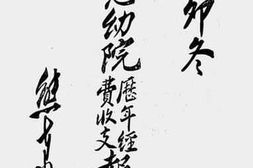 卯冬
慈幼院
歷年經
費收支報
熊